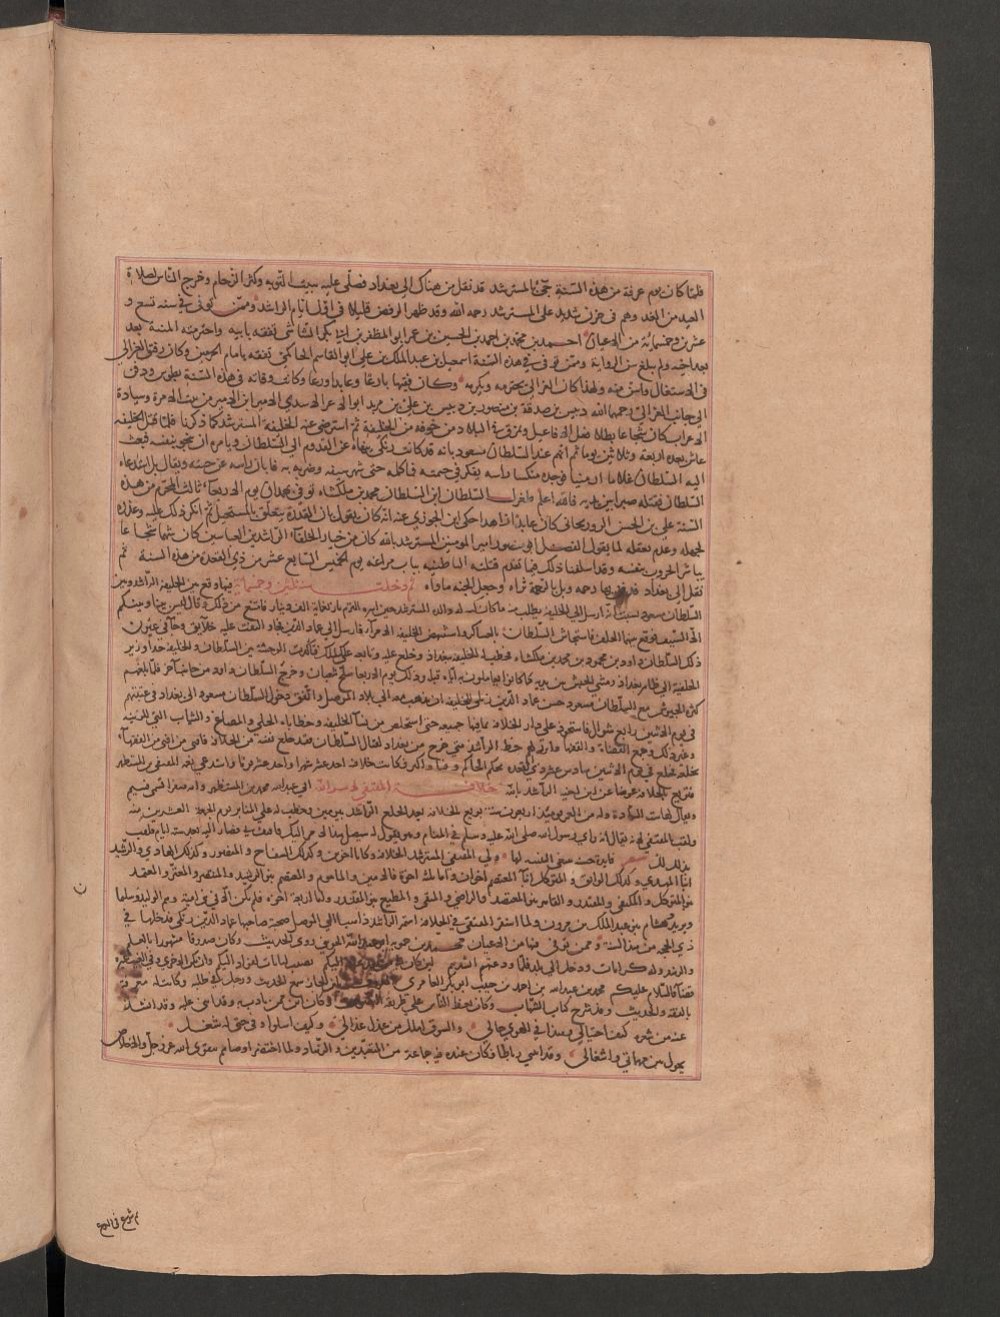 فلما كان يوم عرفة من هذه السنة جئ بالمسترشد قد نقل من هناك الى بغداد فصلى عليه ببيت النوبة وكثر الزحام وخرج الناس لصلاة
العيد من الغد وهم في حزن شديد على المسترشد رحمه الله وقد ظهر الرفض قليلا في اول ايام الراشد وممن توفى في سنه تسع و
عشرين وخمسمائة من الاعيان احمد بن محمد بن احمد بن الحسين بن عمر ابو المظفر بن ابى بكر الشاشى تفقه بابيه واخترمته المنية بعد
بعد اخيه ولم يبلغ سن الرواية وممن توفى في هذه السنة اسمعيل بن عبد الملك بن على ابو القاسم الحاكمى تفقه بامام الحرمين وكان رفيق الغزالى
في الاشتغال واسن منه ولهذا كان الغزالى يحترمه ويكرمه وكان فقيها بارعا وعابدا ورعا وكانت وفاته في هذه السنة بطوس ودفن
الى جانب الغزالى رحمهما الله دبيس بن صدقة بن منصور بن دبيس بن على بن مزيد ابو الاعز الاسدي الامير ابن الامير من بيت الامرة وسيادة
الاعراب كان شجاعا بطلا فعل الافاعيل وتمزق في البلاد من خوفه من الخليفة ثم استرضى عنه الخليفة المسترشد كما ذكرنا فلما قتل الخليفه
عاش بعده اربعة وثلاثين يوما ثم اتهم عند السلطان مسعود بانه قد كاتب زنكى ينهاه عن القدوم الى السلطان ويامره ان ينجو بنفسه فبعث
اليه السلطان غلاما ارمنيا فوجده منكسا راسه يفكر في خيمته فما كلمه حتى شهر سيفه وضربه به فابان راسه عن جثته ويقال بل استدعاه
السلطان فقتله صبرا بين يديه فالله اعلم طغرل السلطان ابن السلطان محمد بن ملكشاه توفى بهمدان يوم الاربعاء ثالث المحرم من هذه
السنة على بن الحسن الدرزيجانى كان عابدا زاهدا حكى ابن الجوزي عنه انه كان يقول بان القدرة يتعلق بالمستحيل ثم انكر ذلك عليه وعذره
لجهله وعدم تعقله لما يقول الفضل ابو منصور امير المومنين المسترشد بالله كان من خيار الخلفاء الراشدين العباسيين كان شهما شجاعا
يباشر الحروب بنفسه وقد اسلفنا ذلك فيما تقدم قتلته الباطنيه بباب مراغه يوم الخميس السابع عشر من ذي القعدة من هذه السنة ثم
نقل الى بغداد فدفن بها رحمه وبل بالرحمة ثراه وجعل الجنه ماواه ثم دخلت سنة ثلثين وخمسمائة فيها وقع بين الخليفة الراشد وبين
السلطان مسعود بسبب انه ارسل الى الخليفه يطلب منه ما كان له والده المسترشد حين اسره التزم باربعمائة الف دينار فامتنع من ذلك وقال ليس بيننا وبينكم
الا السيف فوقع بينهما الخلف فاستجاش السلطان بالعساكر واستنهض الخليفه الامراء فارسل الى عماد الدين فجاء والتفت عليه خلايق وجاء في غبون
ذلك السلطان داود بن محمود بن محمد بن ملكشاه فخطب له الخليفه ببغداد وخلع عليه وبايعه على الملك فتاكدت الوحشة بين السلطان والخليفه جدا وبرز
الخليفة الى ظاهر بغداد ومشى الجيش بين يديه كما كانوا يعاملون به اباءه قبل وذلك يوم الاربعاء سلخ شعبان وخرج السلطان داود من جانب آخر فلما بلغهم
كثرة الجيوش مع السلطان مسعود حسن عماد الدين زنكى للخليفة ان يذهب معه الى بلاد الموصل واتفق دخول السلطان مسعود الى بغداد في غيبتهم
في يوم الاثنين رابع شوال فاستحوذ على دار الخلافة بما فيها جميعه حتى استخلص من نساء الخليفه وحظاياه الحلى والمصاغ والثياب التى للزينة
وغير ذلك وجمع القضاة والفقهاء وابرز لهم خط الراشد متى خرج من بغداد لقتال السلطان فقد خلع نفسه من الخلافة فافتى من افتى من الفقهاء
بخلعه فخلع في يوم الاثنين سادس عشر ذي القعدة بحكم الحاكم وفتيا الاكثر فكانت خلافته احد عشر شهرا واحد عشر يوما واستدعى بعمه المقتفى بن المستظهر
فبويع بالخلافة عوضا عن ابن اخيه الراشد بالله خلافة المقتفى لامر الله ابي عبد الله محمد بن المستظهر وامه صفراء تسمى نسيم
ويقال لها ست السادة وله من العمر يومئذ اربعون سنة بويع بالخلافة بعد الخلع الراشد بيومين وخطب له على المنابر يوم الجمعه العشرين منه
ولقب المقتفى لانه يقال انه راى رسول الله صلى الله عليه وسلم في المنام وهو يقول له سيصل هذا الامر اليك فاقتف بي فصار اليه بعد سته ايام فلقب
بذلك لذلك فايدة حسنه ينبغى التنبه لها ولى المقتفى المسترشد الخلافة وكانا اخوين وكذلك السفاح والمنصور وكذلك الهادي والرشيد
ابنا المهدي وكذلك الواثق والمتوكل ابنا المعتصم اخوان واما ثلاثة اخوة فالامين والمامون والمعتصم بنو الرشيد والمنتصر والمعتز والمعتمد
بنو المتوكل والمكتفى والمقتدر والقاهر بنو المعتضد والراضى والمتقى والمطيع بنو المقتدر واما اربعة اخوة فلم يكن الا في بنى امية وهم الوليد وسليمان
ويزيد وهشام بنو عبد الملك بن مروان ولما استقر المقتفى في الخلافة استمر الراشد ذاهبا الى الموصل صحبة صاحبها عماد الدين زنكى فدخلها في
ذي الحجه من هذا السنة وممن توفى فيها من الاعيان محمد بن حمويه ابو عبد الله الجوينى روى الحديث وكان صدوقا مشهورا بالعلم
والزهد وله كرامات ودخل الى بغداد فلما ودعهم انشدهم لئن كان لى من بعد عود اليكم قضيت لبانات الفؤاد اليكم وان تكن الاخرى وفى الغيب عبرة
قضاء فالسلام عليكم محمد بن عبد الله بن احمد بن حبيب ابو بكر العامري المعروف بابن الخباز سمع الحديث ورحل في طلبه وكانت له معرفة
بالفقه والحديث وقد شرح كتاب الشهاب وكان يعظ الناس على طريقة التصوف وكان ابن الجوزي ممن تادب به وقد اثنى عليه وقد انشد
عنه من شعره كيف احتيالى وهذا في الهوى حالى والشوق املك بى من عذل عذالى وكيف اسلو وفى حبى له شغل
يحول بين مهماتى واشغالى وقد ابتنى رباطا فكان عنده فيه جماعة من المتعبدين والزهاد ولما احتضر اوصاهم بتقوى الله عز وجل والاخلاص
ثم شرع في النزع